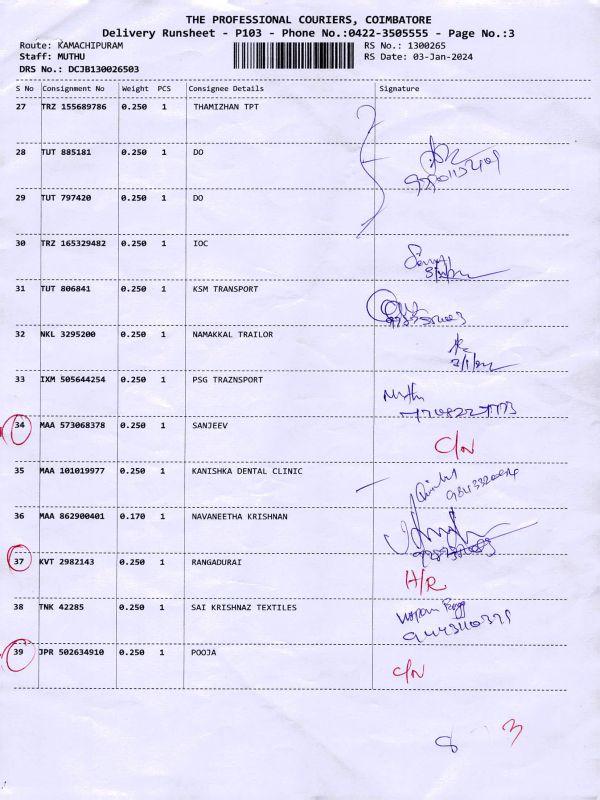 THE PROFESSIONAL COURIERS, COIMBATORE
Delivery Runsheet - P103 - Phone No.:0422-3505555 - Page No.:3
Route: KAMACHIPURAM RS No.: 1300265
Staff: MUTHU RS Date: 03-Jan-2024
DRS No.: DCJB130026503
S No Consignment No Weight PCS Consignee Details Signature
27 TRZ 155689786 0.250 1 THAMIZHAN TPT
28 TUT 885181 0.250 1 DO
29 TUT 797420 0.250 1 DO
30 TRZ 165329482 0.250 1 IOC
31 TUT 806841 0.250 1 KSM TRANSPORT
32 NKL 3295200 0.250 1 NAMAKKAL TRAILOR
33 IXM 505644254 0.250 1 PSG TRAZNSPORT
34 MAA 573068378 0.250 1 SANJEEV C/N
35 MAA 101019977 0.250 1 KANISHKA DENTAL CLINIC
36 MAA 862900401 0.170 1 NAVANEETHA KRISHNAN
37 KVT 2982143 0.250 1 RANGADURAI H/R
38 TNK 42285 0.250 1 SAI KRISHNAZ TEXTILES
39 JPR 502634910 0.250 1 POOJA C/N
8 3